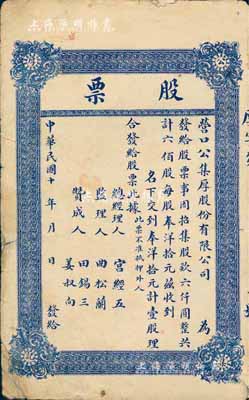 股票
營口公集厚股份有限公司 為
發給股票事周招集股款六仟圓整共
計六佰股每股奉洋拾元茲收到
名下交到奉洋拾元計壹股理
合發給股票此據 此票不准抵押外人
總經理人 宮經五
監理人 曲松蘭
贊成人 田錫三
姜叔向
中華民國十 年 月 日 發給